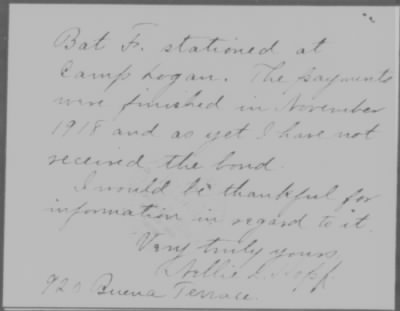 Bat F. stationed at
Camp Logan. The payments
were finished in November
1918 and as yet I have not
received the bond.
I would be thankful for
information in regard to it.
Very truly yours,
Nellie
Buena Terrace.